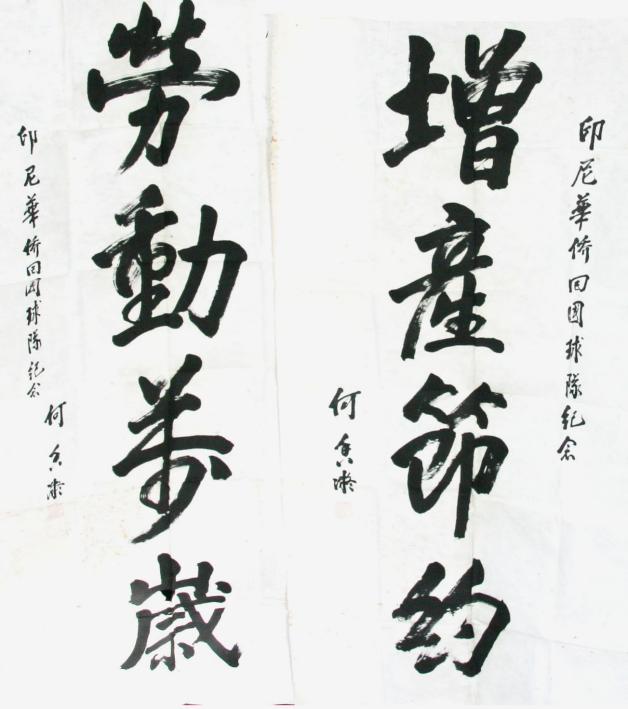 印尼華侨回國球隊紀念
增產節约
何香凝
勞動萬歲
印尼華侨回国球隊紀念
何香凝